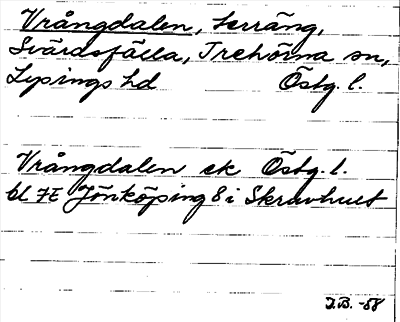 Vrångdalen, terräng,
Svärdsfälla, Trehörna sn,
Lysings hd Östg. l.
Vrångdalen ek Östg. l.
bl 7E Jönköping 8 i Skruvhult
I.B. -88